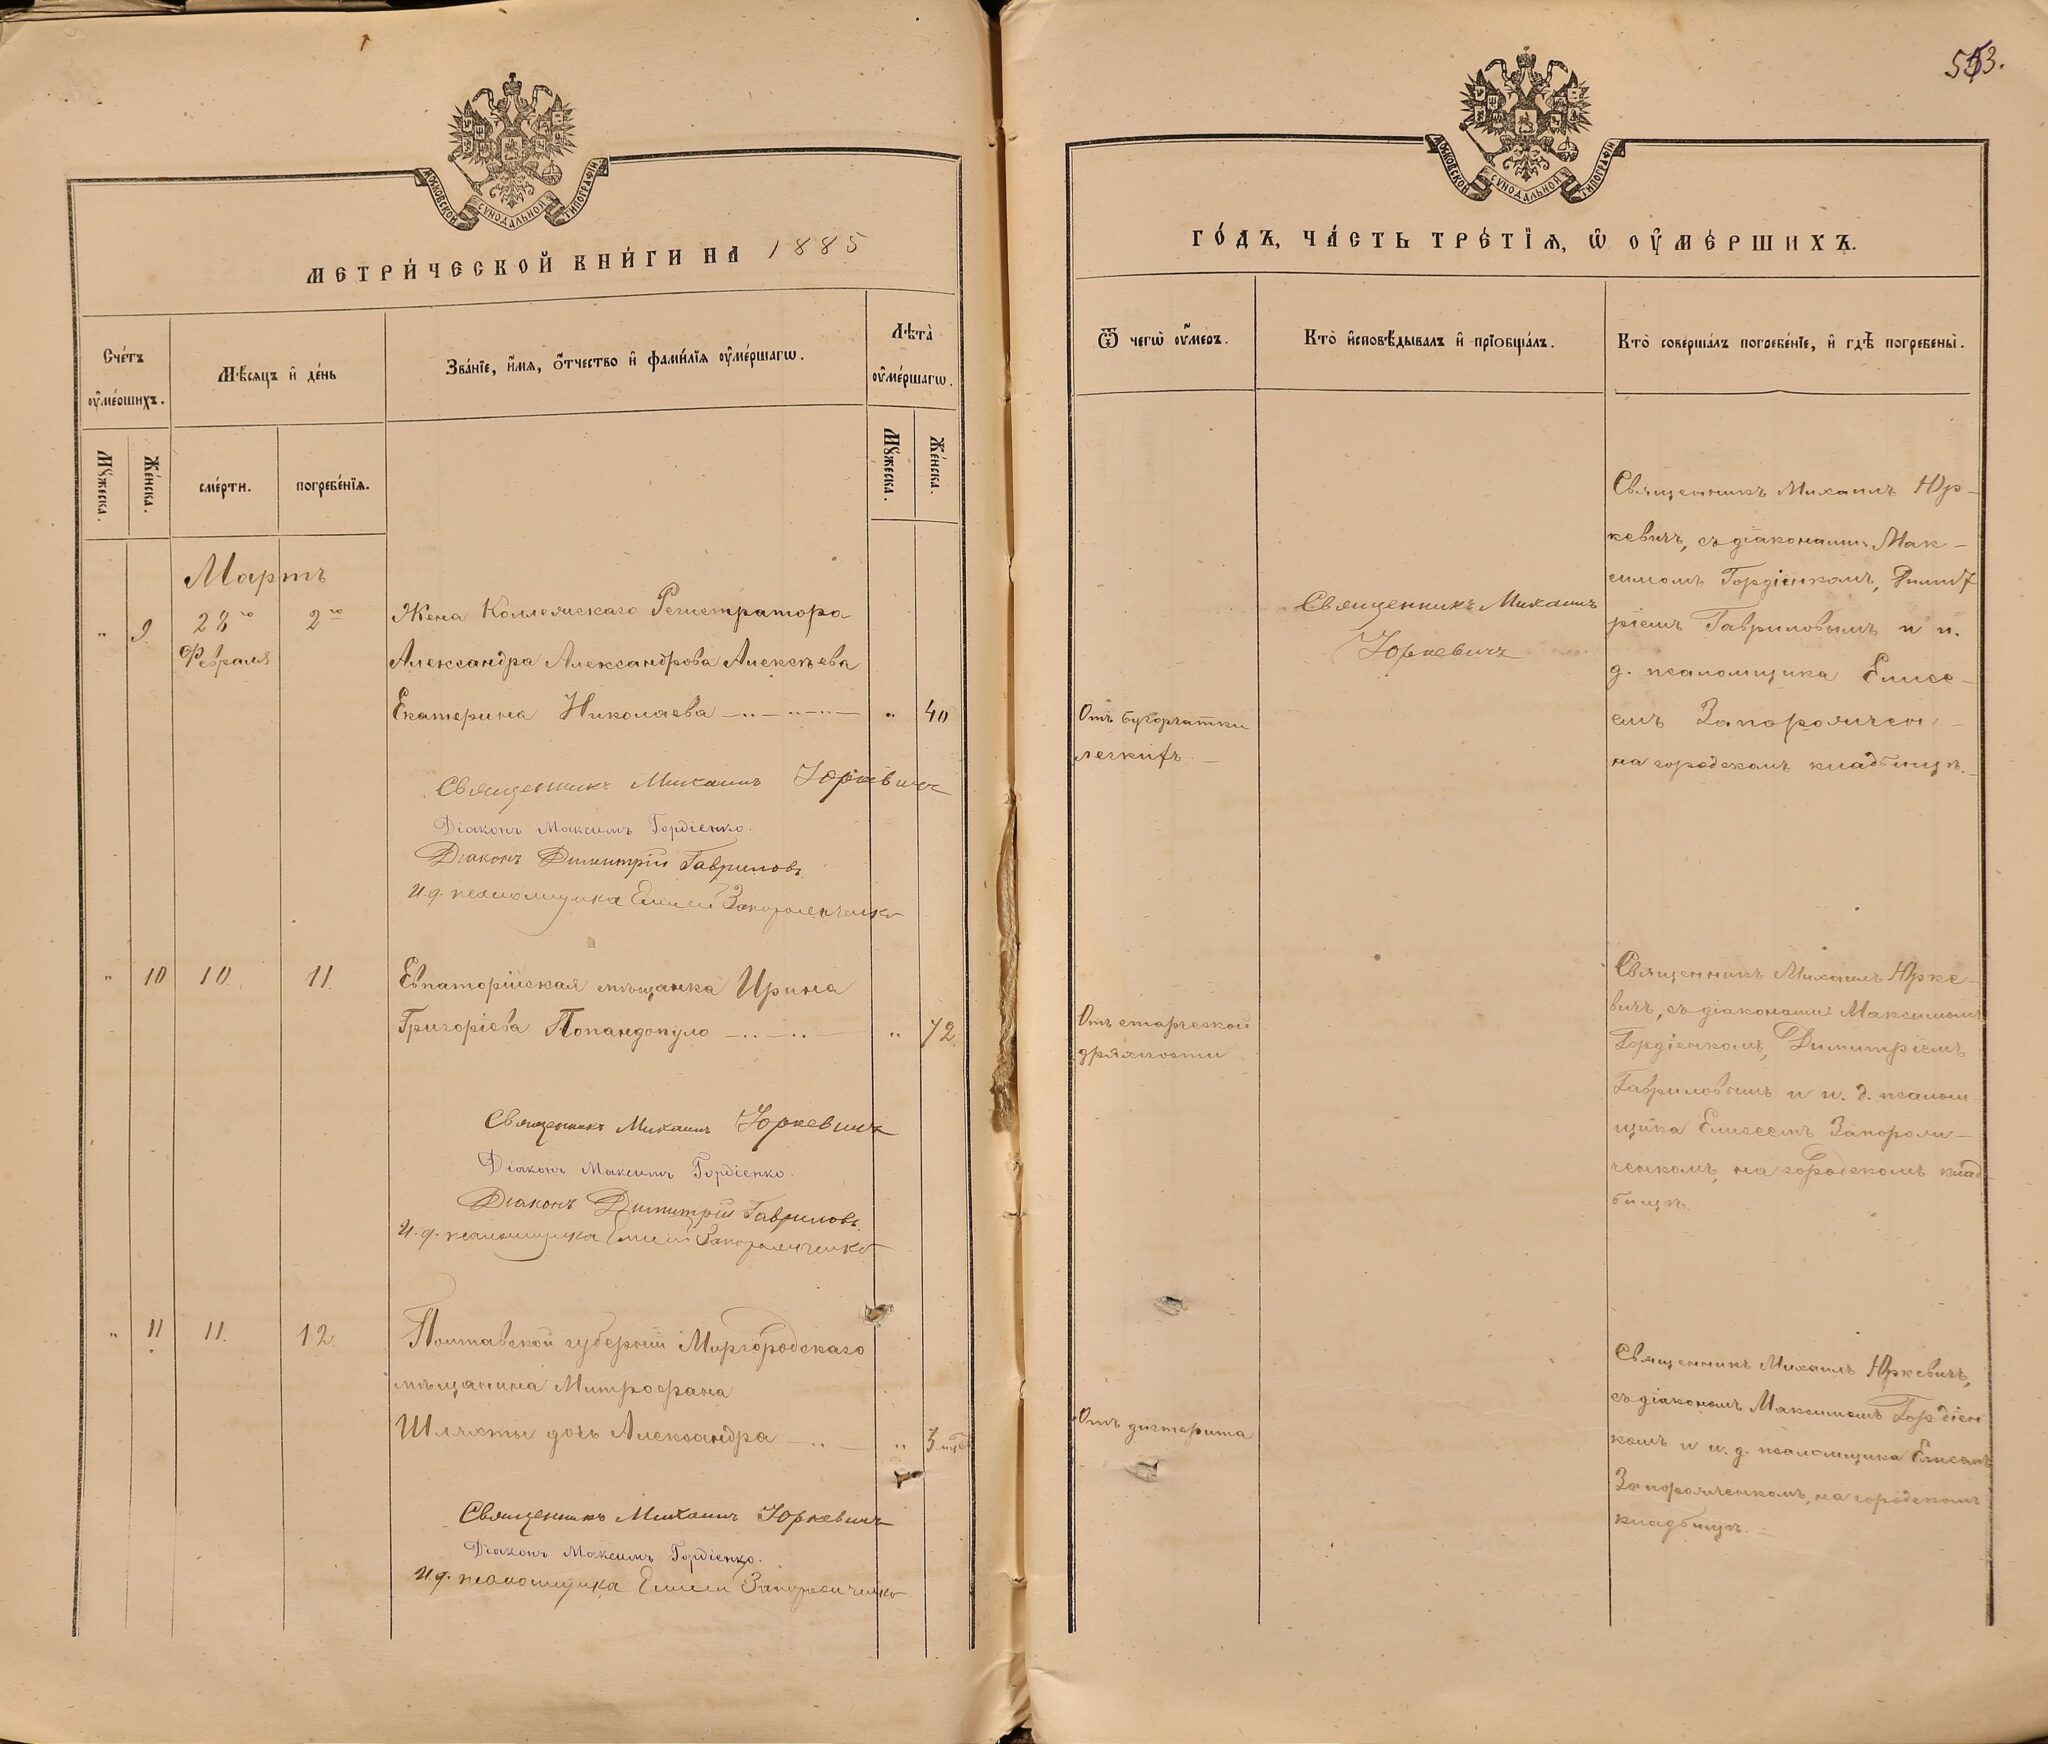 553.
МОСКОВСКОЙ СУНОДАЛЬНОЙ ТИПОГРАФІИ
МЕТРИ́ЧЕСКОЙ КНИ́ГИ НА 1885
Сче́тъ ᲂу҆ме́ршихъ.
Мѣ́сяцъ и҆ де́нь
Зва́нїе, и҆́мя, ѻ҆́тчество и҆ фами́лїя ᲂу҆ме́ршагѡ.
Лѣ́та ᲂу҆ме́ршагѡ.
Мꙋ́жеска.
Же́нска.
сме́рти.
погребе́нїя.
Мꙋ́жеска.
Же́нска.
Мартъ
„ 9 28го Февраля 2го
Жена Коллежскаго Регистратора
Александра Александрова Алексѣева
Екатерина Николаева „ 40
Священникъ Михаилъ Юркевичъ
Діаконъ Максимъ Гордіенко.
Діаконъ Димитрій Гавриловъ
И. д. псаломщика Елисей Запорожченко
„ 10 10. 11.
Евпаторійская мѣщанка Ирина
Григоріева Попандопуло „ 72.
Священникъ Михаилъ Юркевичъ
Діаконъ Максимъ Гордіенко.
Діаконъ Димитрій Гавриловъ
И. д. псаломщика Елисей Запорожченко
„ 11 11. 12
Полтавской губерніи Миргородскаго
мѣщанина Митрофана
Шляхты дочь Александра „
Священникъ Михаилъ Юркевичъ
Діаконъ Максимъ Гордіенко.
И. д. псаломщика Елисей Запорожченко
МОСКОВСКОЙ СУНОДАЛЬНОЙ ТИПОГРАФІИ
ГО́ДЪ, ЧА́СТЬ ТРЕ́ТЇЯ, Ѡ҆ ОУ҆МЕ́РШИХЪ.
Ѿ чегѡ̀ ᲂу҆́меръ.
Кто̀ и҆сповѣ́дывалъ и҆ прїѻбща́лъ.
Кто̀ соверша́лъ погребе́нїе, и҆ гдѣ̀ погребены̀.
Отъ бугорчатки
легкихъ.
Священникъ Михаилъ
Юркевичъ
Священникъ Михаилъ Юр-
кевичъ, съ діаконами: Мак-
симомъ Гордіенкомъ, Димит-
ріемъ Гавриловымъ и и.
д. псаломщика Елисе-
емъ Запорожчен-
на городскомъ кладбищѣ.
Отъ старческой
дряхлости
Священникъ Михаилъ Юрке-
вичъ, съ діаконами: Максимомъ
Гордіенкомъ, Димитріемъ
Гавриловымъ и и. д. псалом-
щика Елисеемъ Запорож-
ченкомъ, на городскомъ клад-
бищѣ.
Отъ дифтерита
Священникъ Михаилъ Юркевичъ,
съ діакономъ Максимомъ Гордіен
комъ и и. д. псаломщика Елисеемъ
Запорожченкомъ, на городскомъ
кладбищѣ.